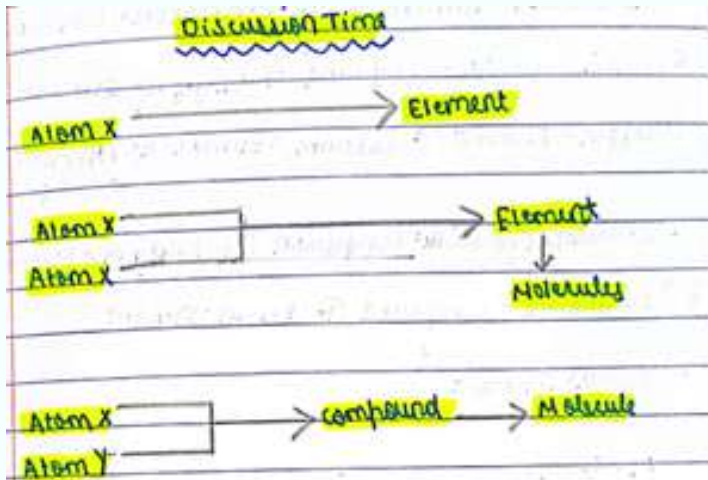 Discussion Time
Atom X → Element
Atom X
Atom X → Element
↓
Molecules
Atom X
Atom Y → compound → Molecule